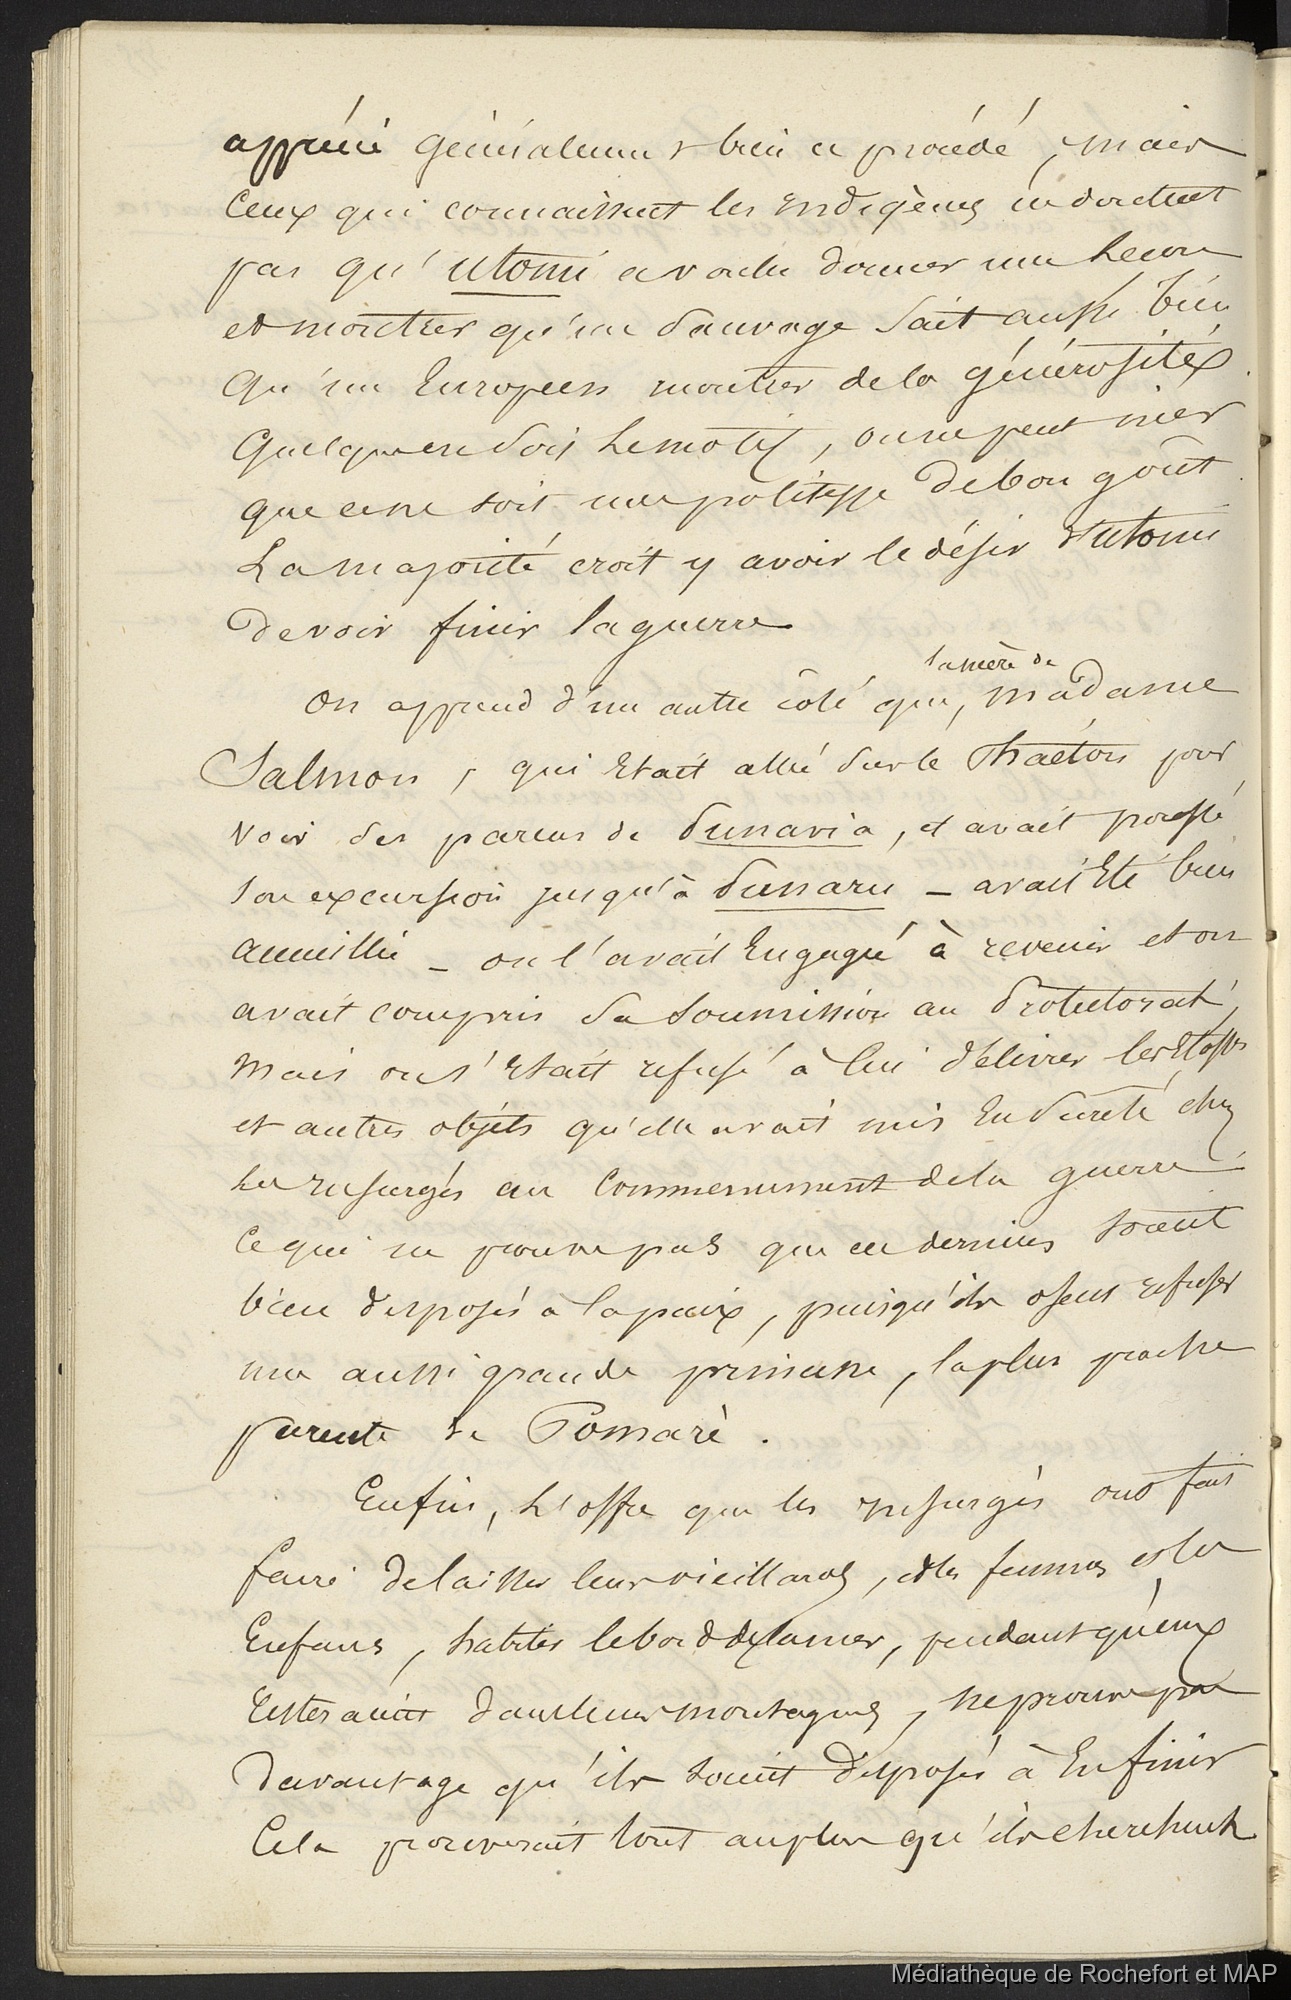 apprécié généralement bien ce procédé, mais
ceux qui connaissent les indigènes ne doutent
pas qu'utomi a voulu donner une lecon
et montrer qu'un sauvage sait aussi bien
qu'un Européen montrer de la générosité
Quelqu'en soit le motif, on ne peut nier
que ce ne soit une politesse de bon goût
La majorité croit y avoir le désir d'utomi
de voir finir la guerre
On apprend d'un autre côté que, la mère de madame
Salmon, qui était allé sur le Phaéton pour
voir ses parens de Punavia, et avait poussé
son excursion jusqu'à Punaru – avait été bien
accueillie – on l'avait engagé à revenir et on
avait compris sa soumission au Protectorat,
mais on s'était refusé à lui délivrer les étoffes
et autres objets qu'elle avait mis en sureté chez
les insurgés au commencement de la guerre
ce qui ne prouve pas que ces derniers soient
bien disposés à la paix, puisqu'ils osent refuser
une aussi grande princesse, la plus proche
parente de Pomaré.
Enfin, l'offre que les insurgés ont fait
faire de laisser leurs vieillards, et les femmes et les
Enfans, habiter le bord de la mer, pendant qu'eux
resteraient dans leurs montagnes, ne prouve pas
davantage qu'ils soient disposés à en finir
Cela prouverait tout au plus qu'ils cherchent
Médiathèque de Rochefort et MAP